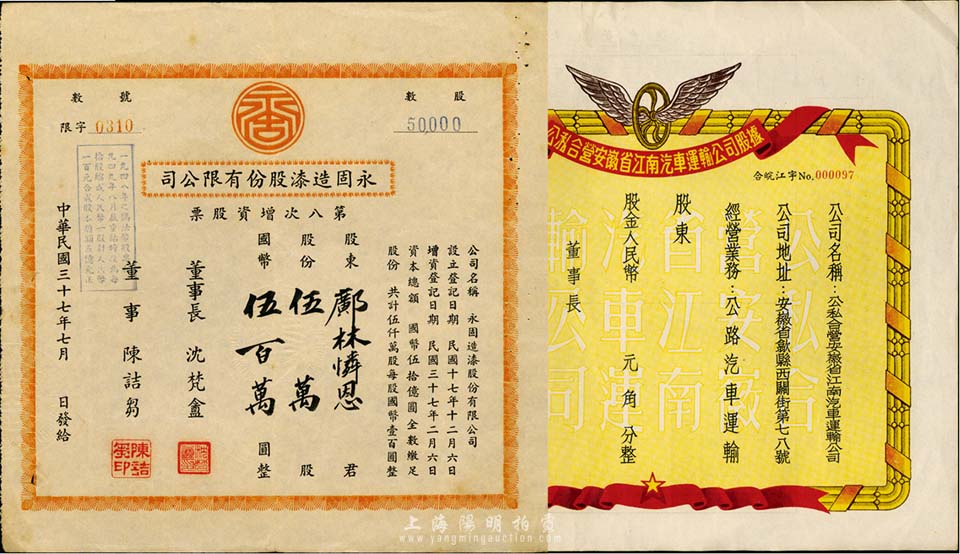 號數
限字 0310
股數
50,000
永固造漆股份有限公司
第八次增資股票
公司名稱 永固造漆股份有限公司
設立登記日期 民國十七年十二月六日
增資登記日期 民國三十七年二月六日
資本總額 國幣伍拾億圓全數繳足
股份 共計伍仟萬股每股國幣壹百圓整
股東 鄺林憐恩 君
股份 伍萬 股
國幣 伍百萬 圓整
董事長 沈梵盦
董事 陳詰芻
中華民國三十七年七月 日發給
公私合營安徽省江南汽車運輸公司股據
合皖江字No.000097
公司名稱：公私合營安徽省江南汽車運輸公司
公司地址：安徽省歙縣西關街第七八號
經營業務：公路汽車運輸
股東
股金人民幣 元 角 分整
董事長
上海陽明拍賣
www.yangmingauction.com